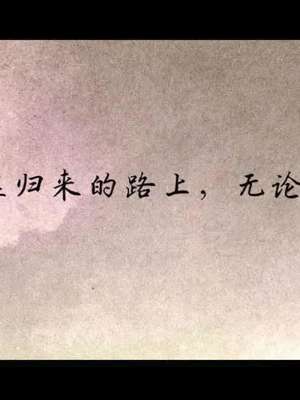 归来的路上，无论